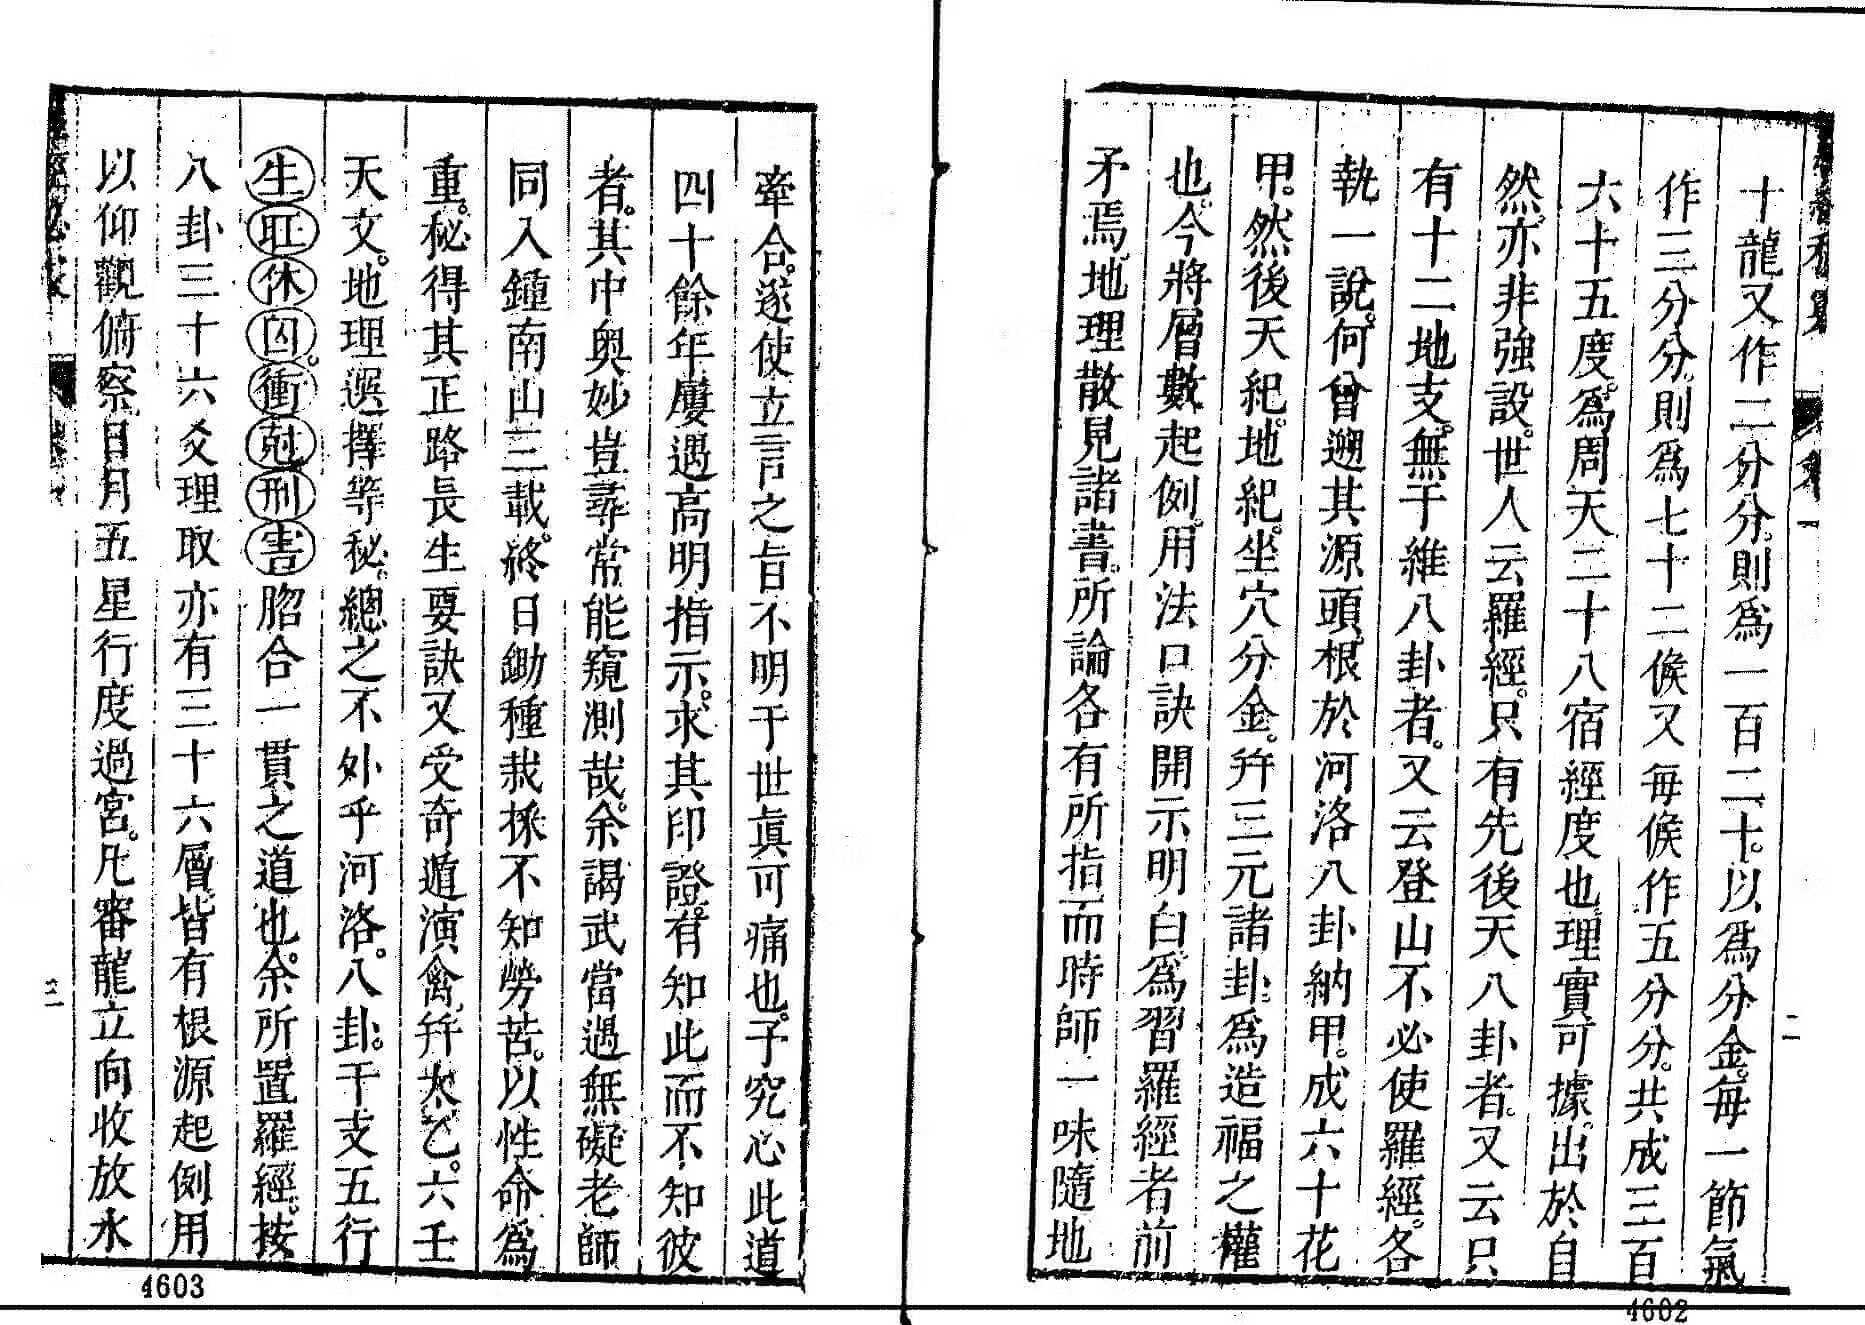 十龍又作二分分。則為一百二十。以為分金。每一節氣
作三分分。則為七十二候又每候作五分分。共成三百
六十五度。為周天二十八宿經度也理實可據。出於自
然。亦非強設。世人云羅經。只有先後天八卦者。又云只
有十二地支。無干維八卦者。又云登山不必使羅經。各
執一說。何曾遡其源頭。根於河洛八卦納甲。成六十花
甲。然後天紀。地紀。坐穴分金。幷三元諸卦。為造福之權
也。今將層數起例。用法口訣開示明白。為習羅經者前
矛焉。地理散見諸書。所論各有所指而時師一味隨地
二
4602
牽合。遂使立言之旨不明于世眞可痛也。予究心此道
四十餘年屢遇高明指示。求其印證。有知此而不知彼
者。其中奥妙豈尋常能窺測哉。余謁武當遇無礙老師
同入鍾南山三載。終日鋤種栽採不知勞苦。以性命為
重。秘得其正路長生要訣又受奇遁演禽。幷太乙。六壬
天文。地理選擇等秘。總之不外乎河洛。八卦。干支五行
生旺休囚。衝尅刑害脗合一貫之道也。余所置羅經。按
八卦三十六爻理取亦有三十六層。皆有根源起例用
以仰觀俯察。日月五星行度過宮。凡審龍立向收放水
三
4603